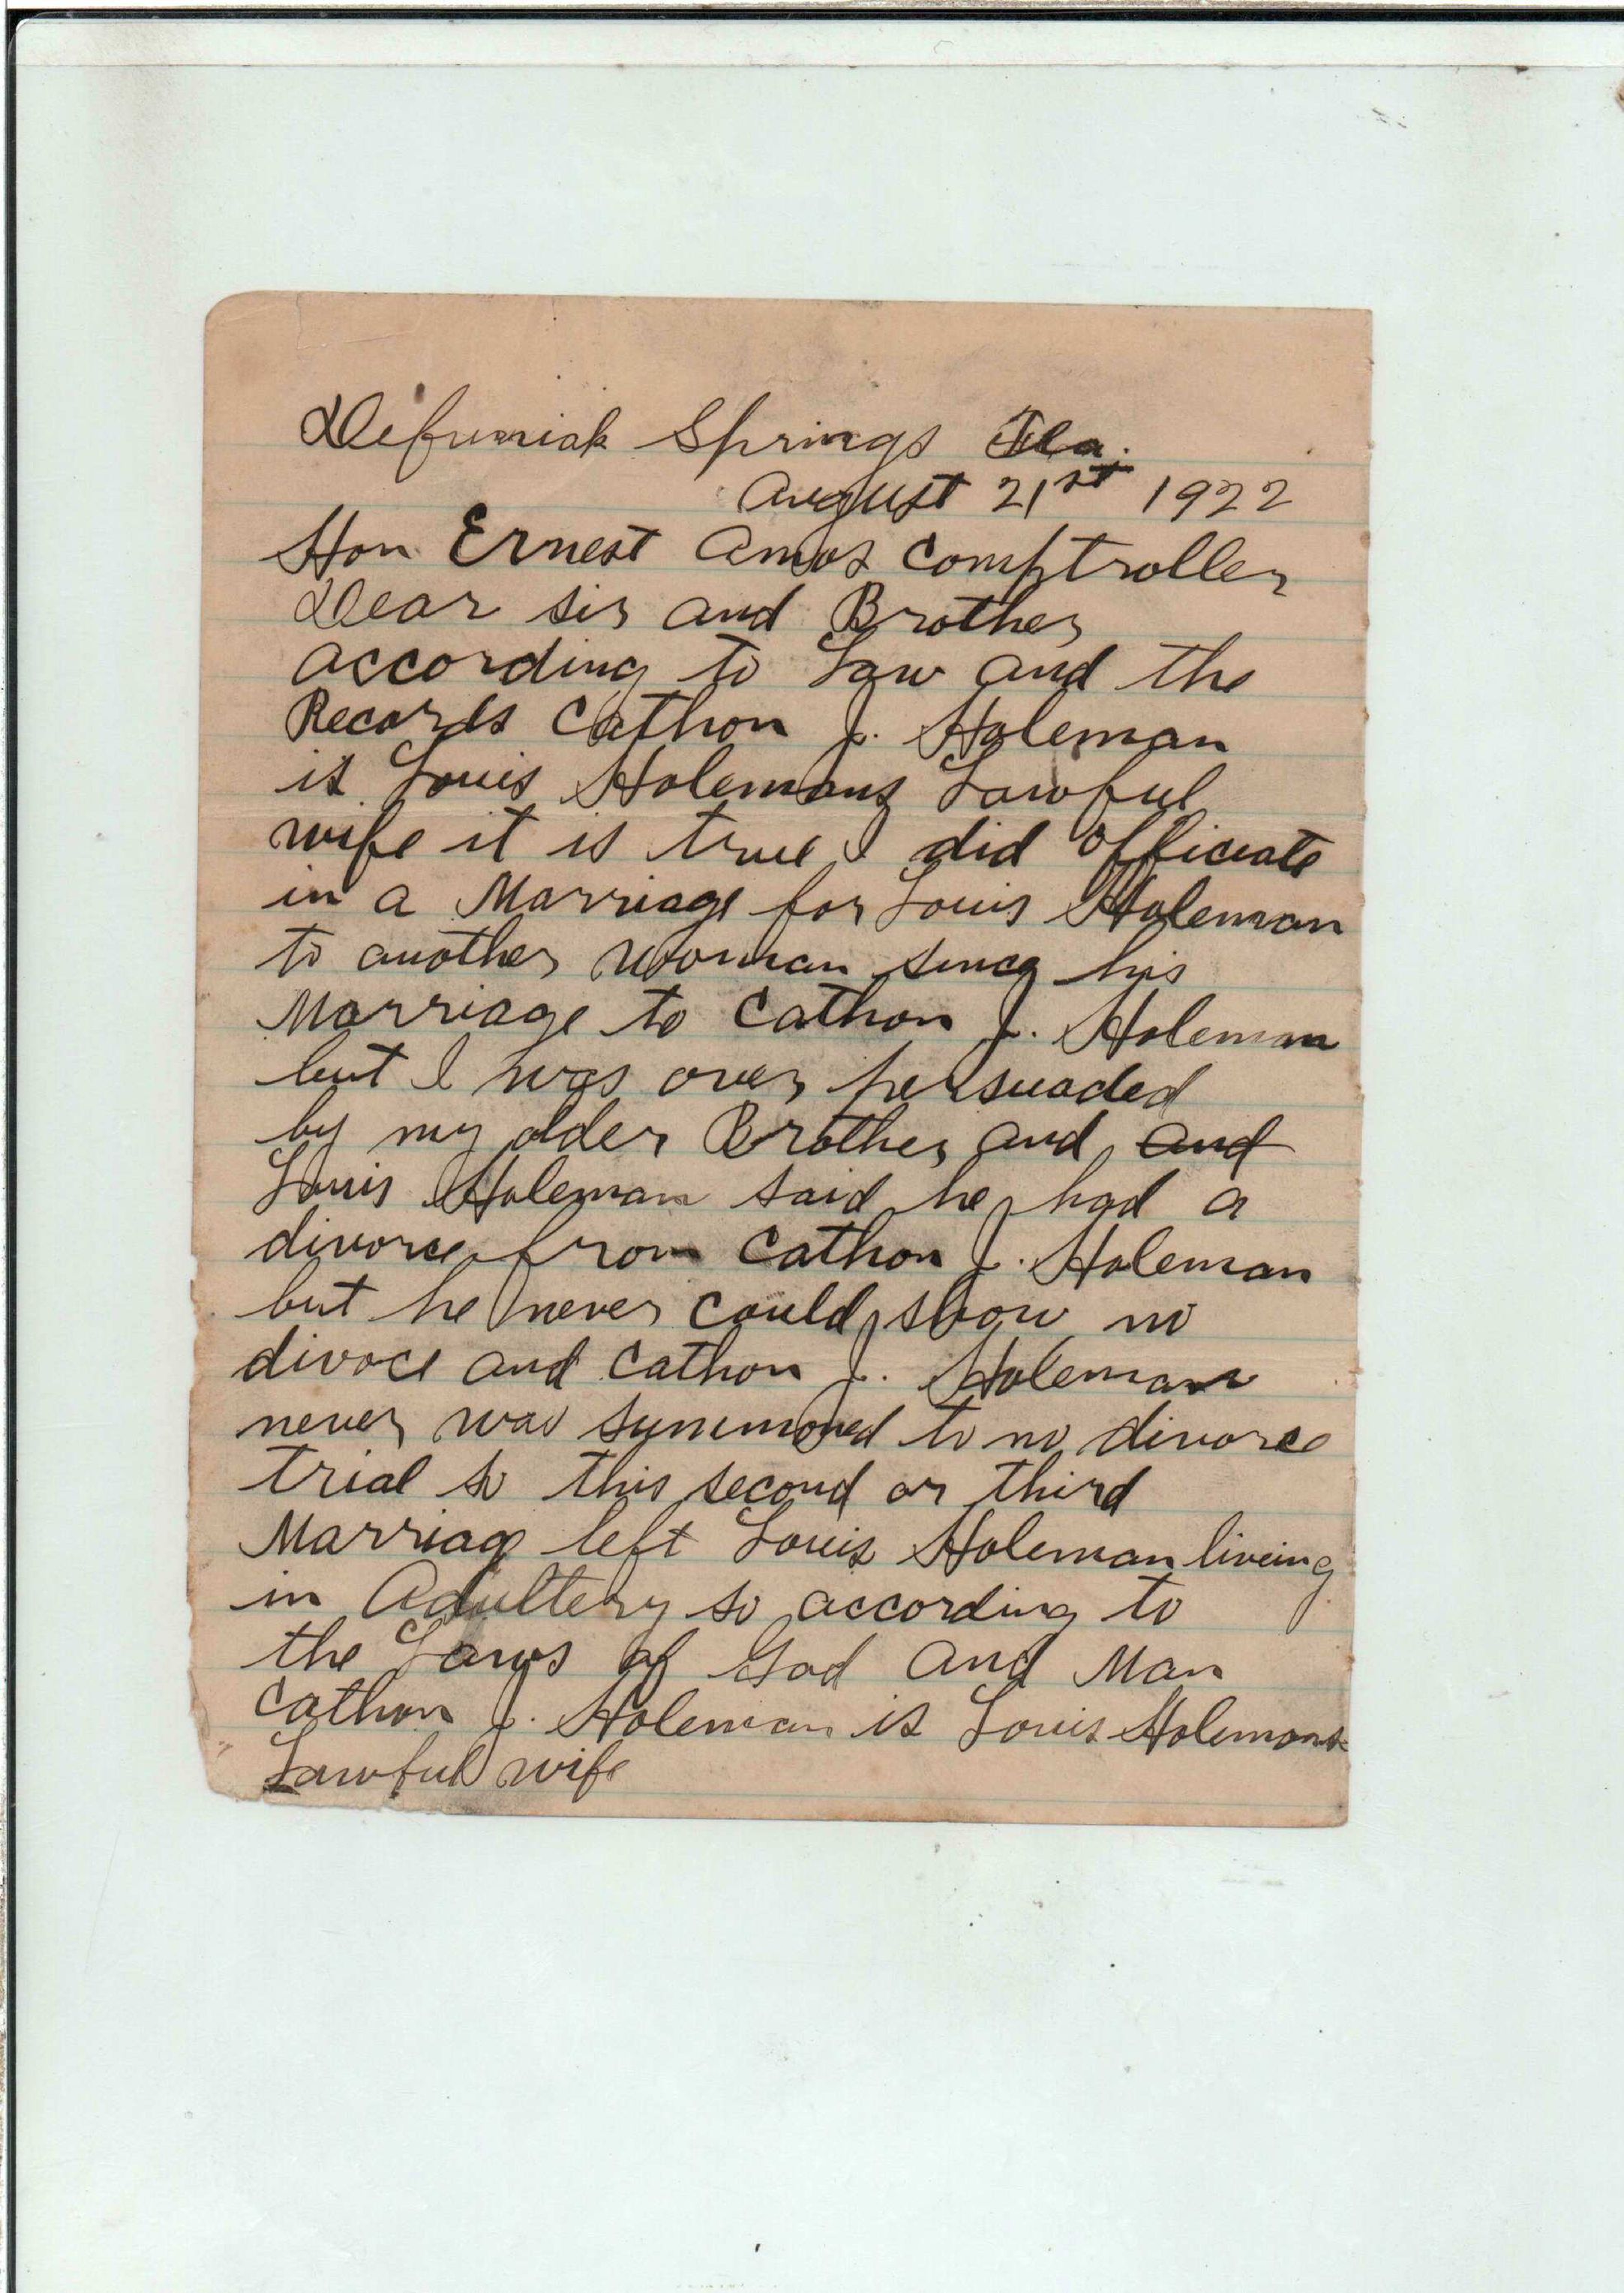 Defuniak Springs Fla.
August 21st 1922
Hon Ernest Amos Comptroller
Dear sir and Brother
according to Law and the
Records Cathon J. Holeman
is Louis Holemans Lawful
wife it is true I did officiate
in a Marriage for Louis Holeman
to another woman since his
Marriage to Cathon J. Holeman
but I was over persuaded
by my older Brother and and
Louis Holeman said he had a
divorce from Cathon J. Holeman
but he never could show no
divoce and Cathon J. Holeman
never was summoned to no divorce
trial so this second or third
Marriag left Louis Holeman liveing
in Adultery so according to
the Laws of God and Man
Cathon J. Holeman is Louis Holemans
Lawful wife